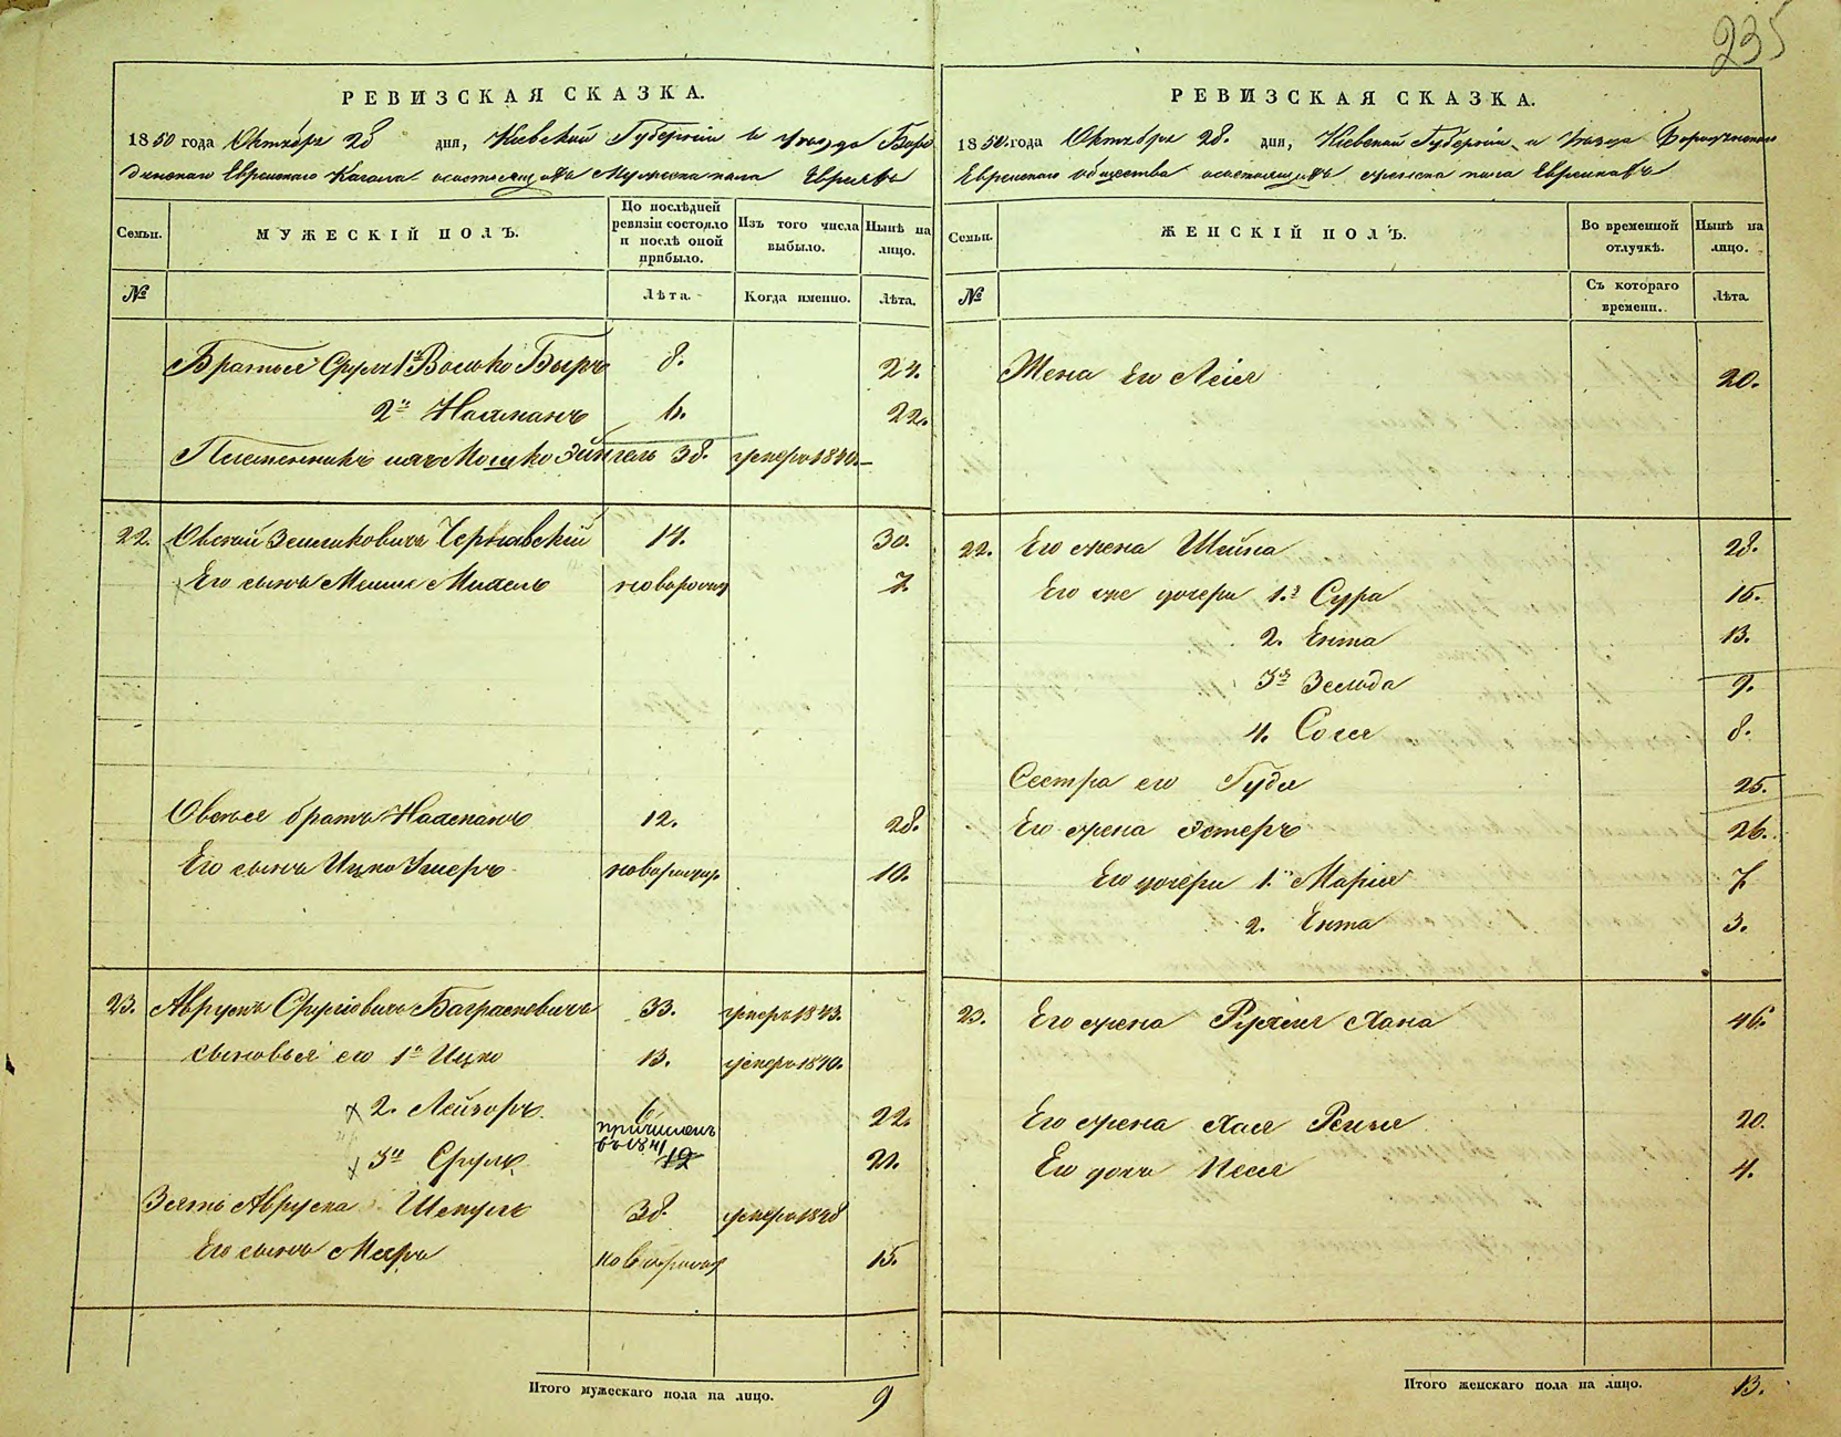 235
РЕВИЗСКАЯ СКАЗКА.
1850 года Октября 28 дня, Киевской Губернии и уезда Боро
дянскаго Еврейскаго Кагала о состоящихъ мужеска пола Евреяхъ
Семьи.
МУЖЕСКІЙ ПОЛЪ.
По послѣдней ревизіи состояло и послѣ оной прибыло.
Изъ того числа выбыло.
Нынѣ на лицо.
№
Лѣта.
Когда именно.
Лѣта.
Братья Сруля 1й Волько Беръ 8. 24.
2й Нахманъ 6. 22.
Племенникъ ихъ Мошко 38. умеръ 1840. —
22. Овсей Зейликовичъ Чернявскій 14. 30.
Его сынъ Михель новорожд 7.
Овсея братъ Нахманъ 12. 28.
Его сынъ Ицко Умеръ новорожд. 10.
23. Аврумъ Сруліовичъ 33. умеръ 1843.
Сыновья его 1й Ицко 13. умеръ 1840.
2. Лейзоръ 6 22.
причисленъ въ 1841
3й Сруль 12 21.
Зять Аврума 38. умеръ 1848
Его сынъ Мееръ новорожд 15.
Итого мужескаго пола на лицо. 9
РЕВИЗСКАЯ СКАЗКА.
1850 года Октября 28. дня, Киевской Губернии и уезда Бородянскаго
Еврейскаго общества о состоящихъ женска пола Еврейкахъ
Семьи.
ЖЕНСКІЙ ПОЛЪ.
Во временной отлучкѣ.
Нынѣ на лицо.
№
Съ котораго времени.
Лѣта.
Жена его Лея 20.
22. Его жена Шейна 28.
Его же дочери 1.я Сура 15.
2. Ента 13.
3я Зельда 9.
4. Сося 8.
Сестра его Гудя 25.
Его жена Эстеръ 26.
Его дочери 1. Марія 7
2. Ента 3.
23. Его жена Хана 46.
Его жена Хая 20.
Его дочь Песя 4.
Итого женскаго пола на лицо. 13.